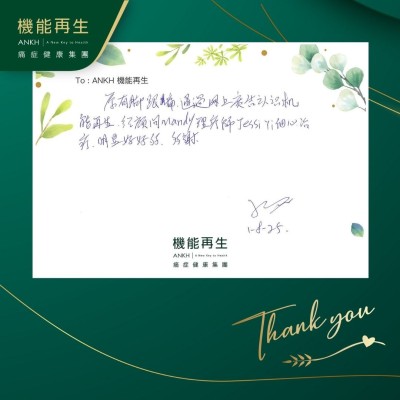 機能再生
ANKH | A New Key to Health
痛症健康集團
To : ANKH 機能再生
原有腳跟痛,通過网上广告认识机
能再生,经顾问Mandy理疗师Jessi Yi细心治
疗,明显好好多,多謝
1-8-25.
機能再生
ANKH | A New Key to Health
痛症健康集團
Thank you